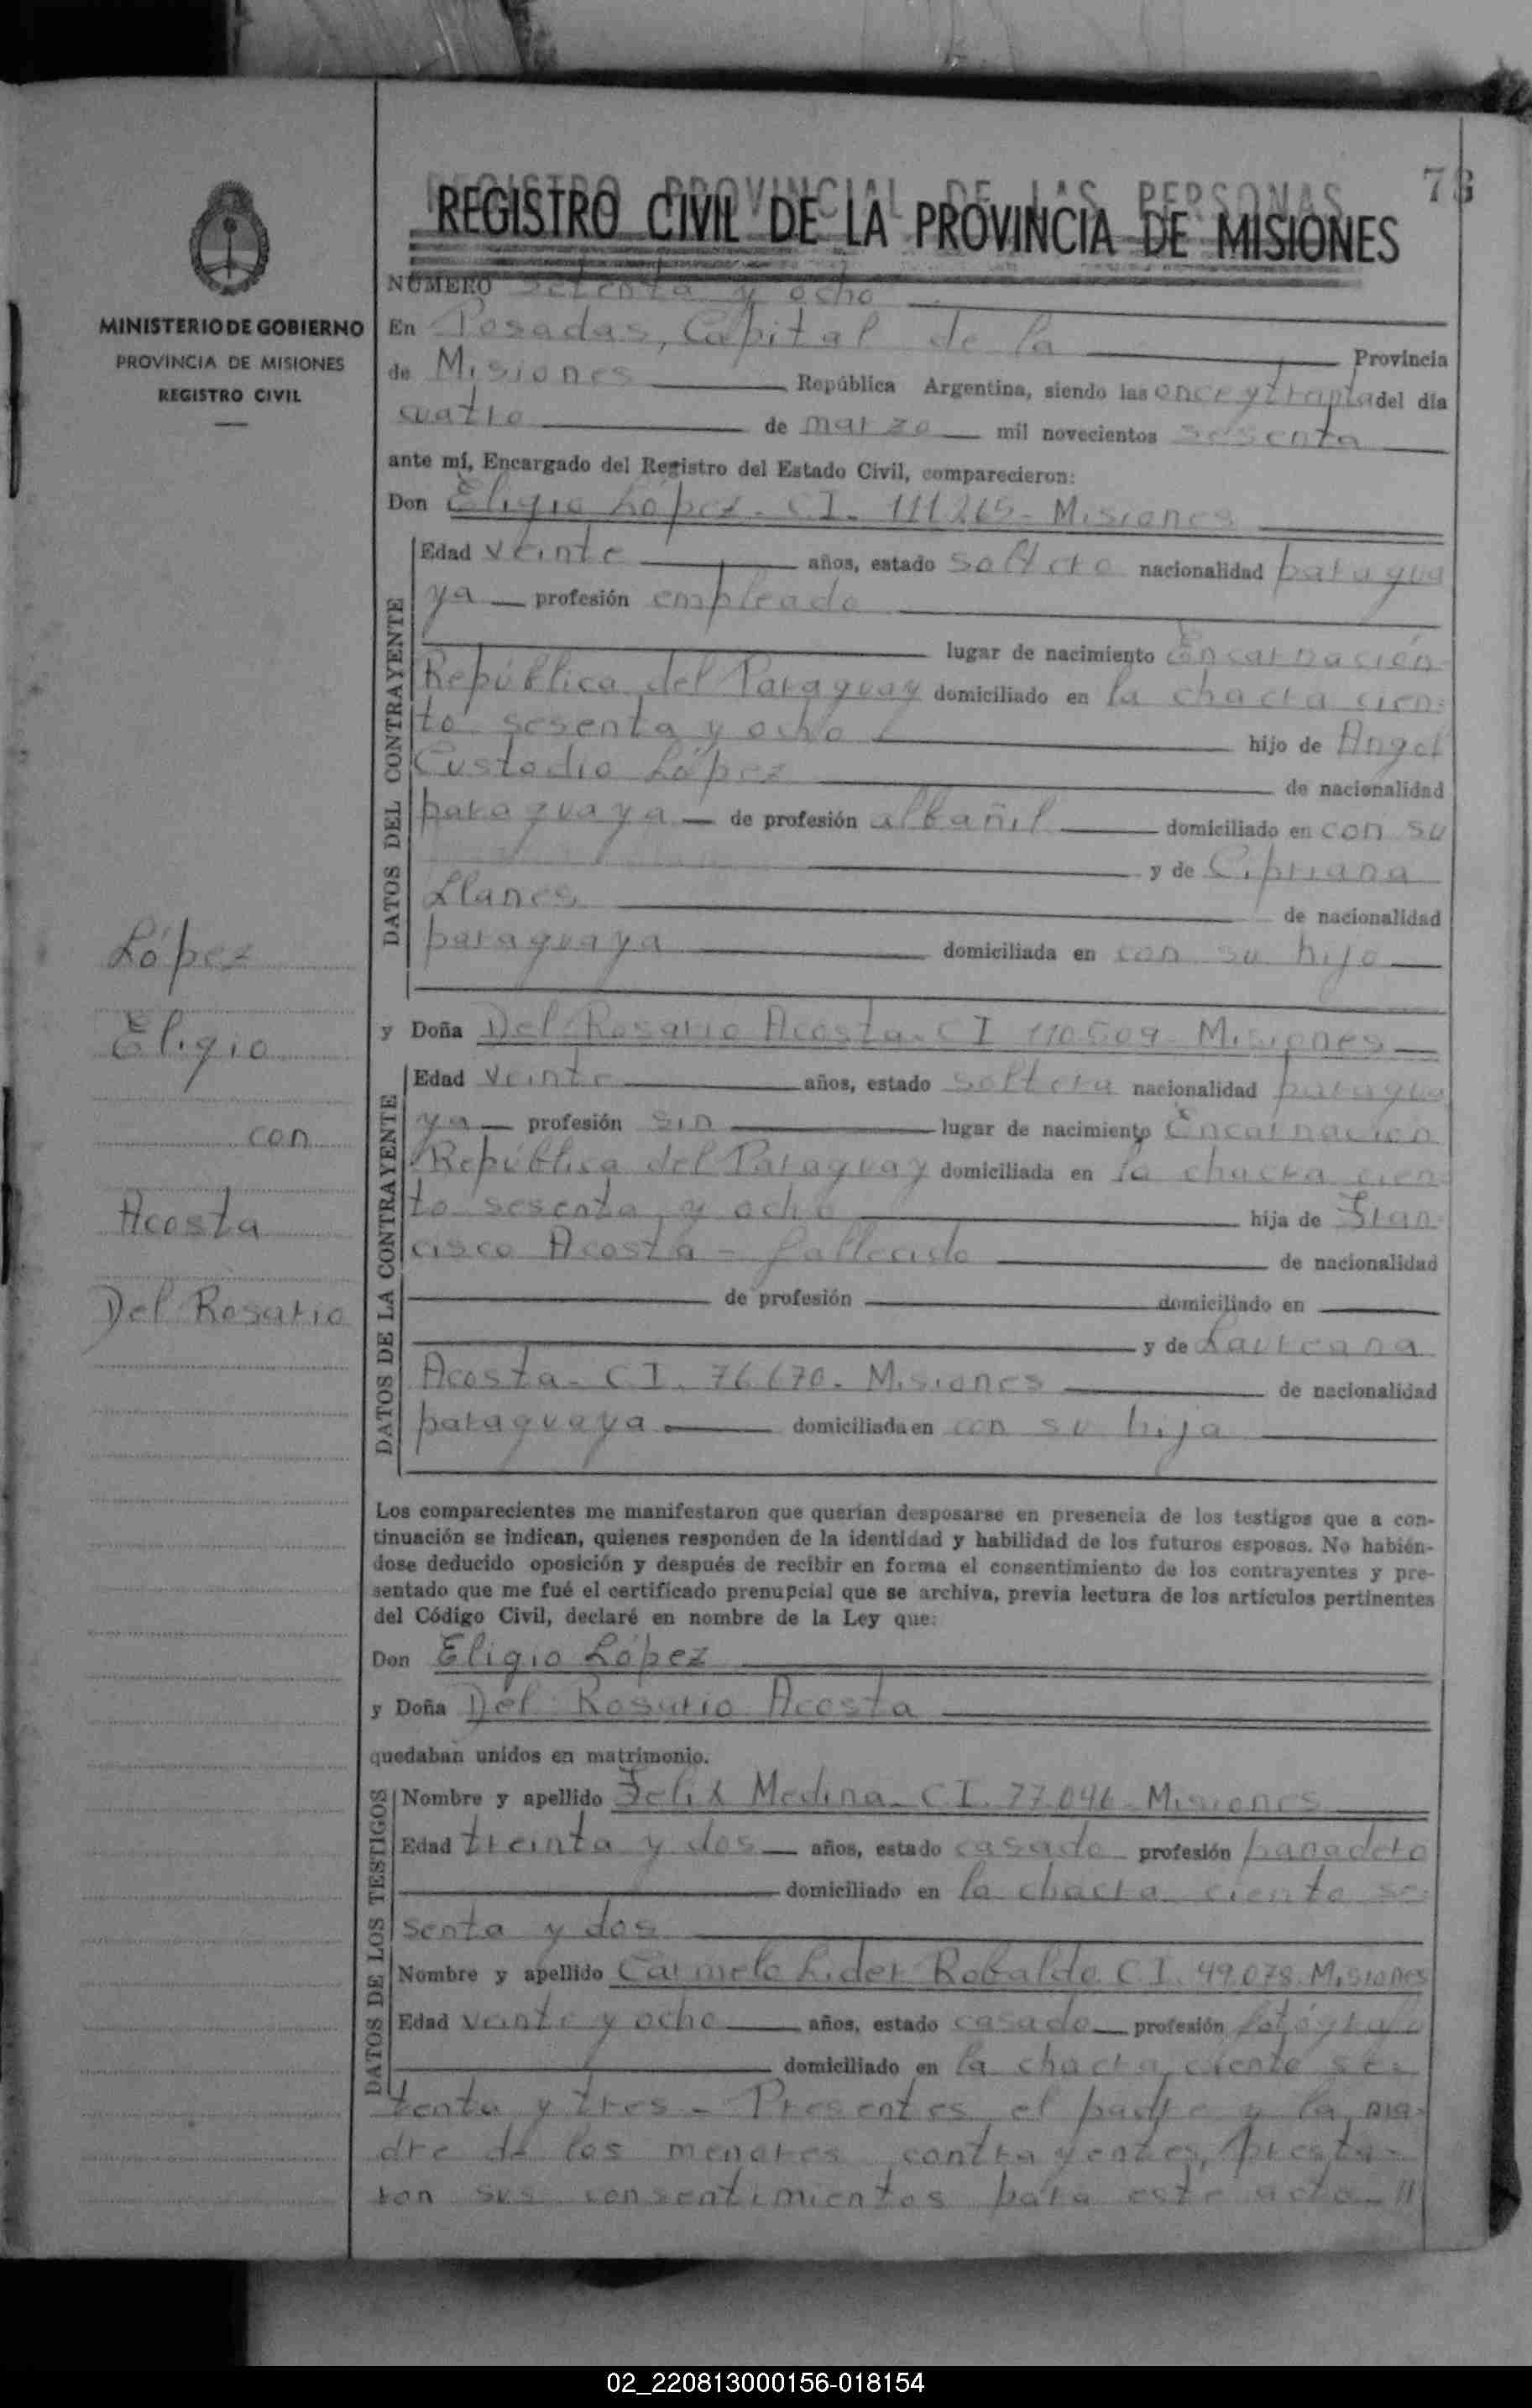 REGISTRO PROVINCIAL DE LAS PERSONAS
78
REGISTRO CIVIL DE LA PROVINCIA DE MISIONES
MINISTERIO DE GOBIERNO
PROVINCIA DE MISIONES
REGISTRO CIVIL
NÚMERO setenta y ocho
En Posadas, Capital de la Provincia
de Misiones República Argentina, siendo las once y treinta del día
cuatro de marzo mil novecientos sesenta
ante mí, Encargado del Registro del Estado Civil, comparecieron:
Don Eligio López - CI. 111265 - Misiones
DATOS DEL CONTRAYENTE
Edad veinte años, estado soltero nacionalidad paragua
ya profesión empleado
lugar de nacimiento Encarnación
República del Paraguay domiciliado en la chacra cien=
to sesenta y ocho hijo de Angel
Custodio López de nacionalidad
paraguaya de profesión albañil domiciliado en con su
y de Cipriana
Llanes de nacionalidad
paraguaya domiciliada en con su hijo
López
Eligio
con
Acosta
Del Rosario
y Doña Del Rosario Acosta - CI 110509 - Misiones
DATOS DE LA CONTRAYENTE
Edad veinte años, estado soltera nacionalidad paragua
ya profesión sin lugar de nacimiento Encarnación
República del Paraguay domiciliada en la chacra cien=
to sesenta y ocho hija de Fran=
cisco Acosta - fallecido de nacionalidad
de profesión domiciliado en
y de Laureana
Acosta - CI. 76.670 - Misiones de nacionalidad
paraguaya domiciliada en con su hija
Los comparecientes me manifestaron que querían desposarse en presencia de los testigos que a con-
tinuación se indican, quienes responden de la identidad y habilidad de los futuros esposos. No habién-
dose deducido oposición y después de recibir en forma el consentimiento de los contrayentes y pre-
sentado que me fué el certificado prenupcial que se archiva, previa lectura de los artículos pertinentes
del Código Civil, declaré en nombre de la Ley que:
Don Eligio López
y Doña Del Rosario Acosta
quedaban unidos en matrimonio.
DATOS DE LOS TESTIGOS
Nombre y apellido Felix Medina - CI. 77.046 - Misiones
Edad treinta y dos años, estado casado profesión panadero
domiciliado en la chacra ciento se=
senta y dos
Nombre y apellido Carmelo Lider Robaldo CI. 49.078 - Misiones
Edad veinte y ocho años, estado casado profesión fotógrafo
domiciliado en la chacra ciento se=
tenta y tres - Presentes el padre y la ma=
dre de los menores contrayentes, presta=
ron sus consentimientos para este acto - //
02_220813000156-018154